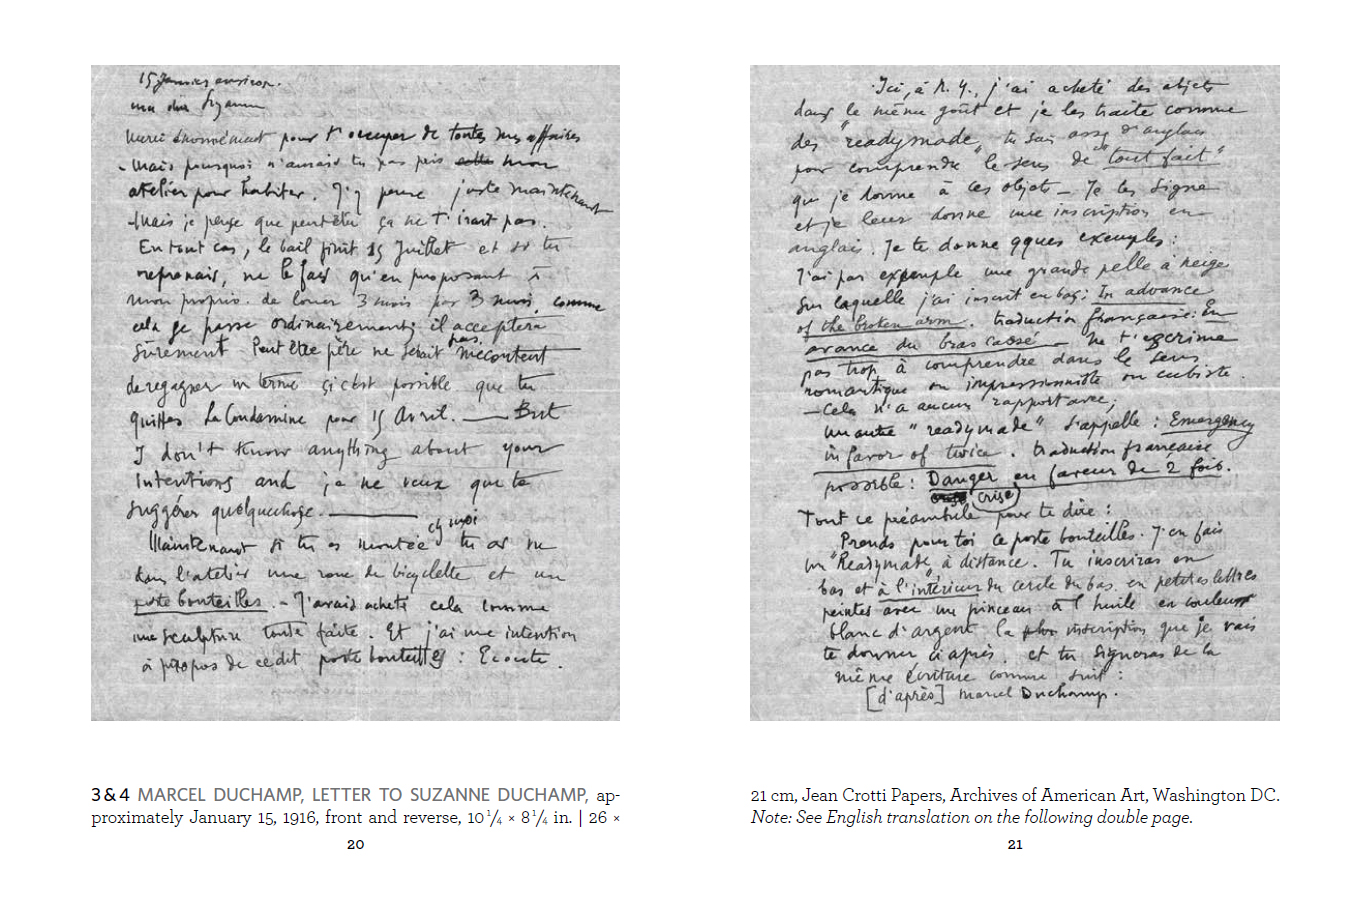 15 Janvier environ.
ma chère Suzanne
Merci énormément pour t'occuper de toutes mes affaires
- Mais pourquoi n'aurais tu pas pris mon
atelier pour habiter. J'y pense juste maintenant
Mais je pense que peut être ça ne t'irait pas.
En tout cas, le bail finit 15 Juillet et si tu
reprenais, ne le fais qu'en proposant à
mon proprio. de louer 3 mois par 3 mois, comme
cela se passe ordinairement; il acceptera
sûrement Peut être père ne serait pas mécontent
de regagner un terme si c'est possible que tu
quittes La Condamine pour 15 Avril. — But
I don't know anything about your
intentions and je ne veux que te
suggérer quelquechose. —
Maintenant si tu es montée chez moi tu as vu
dans l'atelier une roue de bicyclette et un
porte bouteilles. - J'avais acheté cela comme
une sculpture toute faite. Et j'ai une intention
à propos de ce dit porte bouteilles : Ecoute.
3 & 4 MARCEL DUCHAMP, LETTER TO SUZANNE DUCHAMP, ap-
proximately January 15, 1916, front and reverse, 10 1/4 × 8 1/4 in. | 26 ×
20
Ici, à N. Y., j'ai acheté des objets
dans le même goût et je les traite comme
des "readymade", tu sais assez d'anglais
pour comprendre le sens de "tout fait"
que je donne à ces objets – Je les signe
et je leur donne une inscription en
anglais. Je te donne qques exemples :
J'ai par exemple une grande pelle à neige
sur laquelle j'ai inscrit en bas: In advance
of the broken arm. traduction française: En
avance du bras cassé – Ne t'escrime
pas trop à comprendre dans le sens
romantique ou impressionniste ou cubiste.
– Cela n'a aucun rapport avec;
Un autre "readymade" s'appelle : Emergency
in favor of twice. traduction française
possible : Danger (crise) en faveur de 2 fois.
Tout ce préambule pour te dire :
Prends pour toi ce porte bouteilles. J'en fais
un "Readymade" à distance. Tu inscriras en
bas et à l'intérieur du cercle du bas, en petites lettres
peintes avec un pinceau à l'huile en couleur
blanc d'argent la inscription que je vais
te donner ci après. et tu signeras de la
même écriture comme suit :
[d'après] Marcel Duchamp.
21 cm, Jean Crotti Papers, Archives of American Art, Washington DC.
Note: See English translation on the following double page.
21